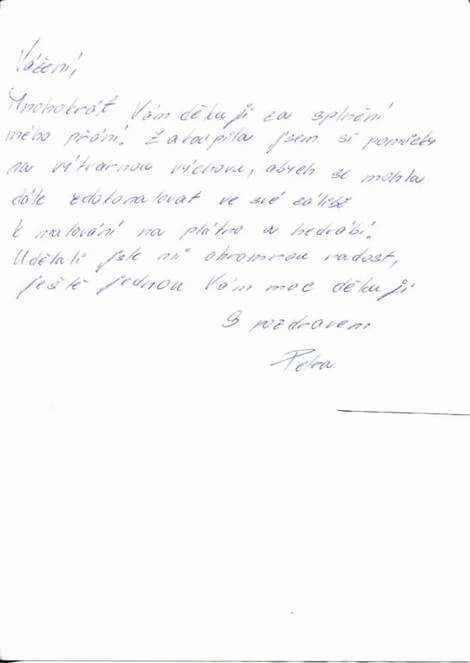 Vážení,
Mnohokrát Vám děkuji za splnění
mého přání. Zakoupila jsem si pomůcky
na výtvarnou výchovu, abych se mohla
dále zdokonalovat ve své zálibě
k malování na plátno a hedvábí.
Udělali jste mi ohromnou radost,
ještě jednou Vám moc děkuji
S pozdravem
Petra